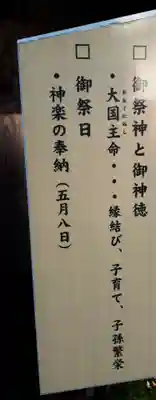 □ 御祭神と御神徳
・大国主命・・・縁結び、子育て、子孫繁栄
□ 御祭日
・神楽の奉納（五月八日）